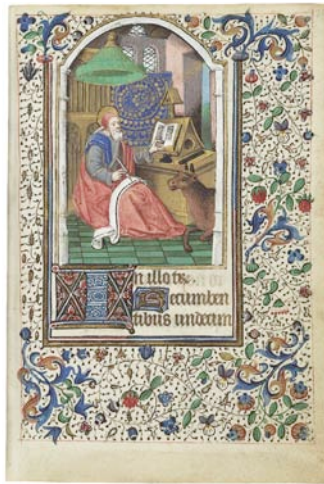 In illo
Recumben
tibus undecim